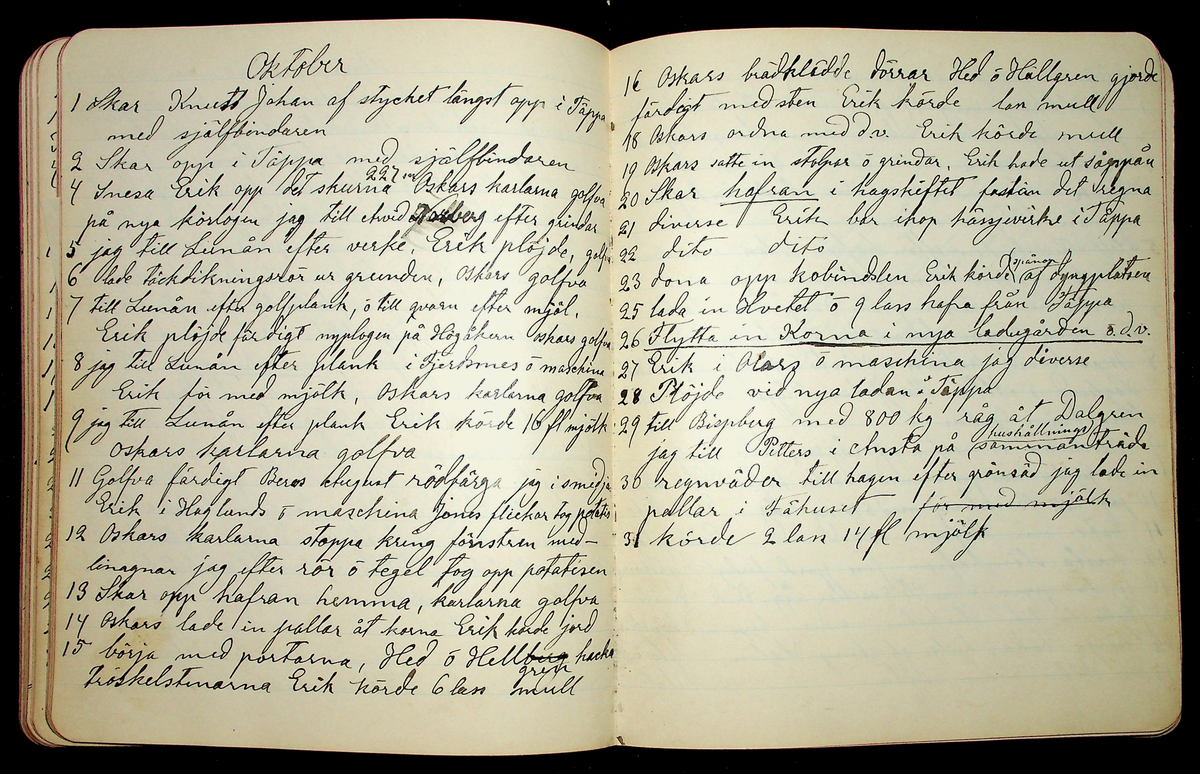 Oktober
1 Skar Knust Johan af stycket längst opp i Täppa
med själfbindaren
2 Skar opp i Täppa med själfbindaren
227 m
4 Snesa Erik opp det skurna Oskars karlarna golfva
på nya körlogen jag till efter grindar
5 jag till Lunån efter verke. Erik plöjde, golfva
6 lade täckdikningsrör ur grunden, Oskars golfva
7 till Lunån efter golfplank, ö till qvarn efter mjöl.
Erik plöjde färdigt nyplogen på Högåkern Oskars golfva
8 jag till Lunån efter plank i Fjerksmes ö maschina
Erik för med mjölk, Oskars karlarna golfva
9 jag till Lunån efter plank Erik körde 16 fl mjölk
Oskars karlarna golfva
11 Golfva färdigt August rödfärga jag i smedja
Erik i Haglunds ö maschina Jones flickor tog potatis
12 Oskars karlarna stoppa kring fönstren med-
linagnar jag efter rör ö tegel tog opp potatisen
13 Skar opp hafran hemma, karlarna golfva
14 Oskars lade in pallar åt korna Erik körde jord
15 börja med portarna, Hed ö Hellberg hacka
gren
tröskelstenarna Erik körde 6 lass mull
16 Oskars brädklädde dörrar Hed ö Hallgren gjorde
färdigt med sten Erik körde lass mull
18 Oskars ordna med d.v. Erik körde mull
19 Oskars satte in stolpar ö grindar, Erik hade ut sågspån
20 Skar hafran i hagskiftet fastän det regna
21 diverse Erik bar ihop hässjevirke i Täppa
22 dito dito
spånor
23 dona opp kobindslen Erik körde af dyngplatsen
25 lada in Hvetet ö 9 lass hafra från Täppa
26 Flytta in Korna i nya ladugården o.d.v.
27 Erik i Olars ö maschina jag diverse
28 Plöjde vid nya ladan i Täppa
29 till Bispberg med 800 kg råg åt Dalgren
hushållnings
jag till Pitters i Ansta på sammanträde
30 regnväder till hagen efter grönsäd jag lade in
pallar i Fähuset för med mjölk
31 körde 2 lass 14 fl mjölk